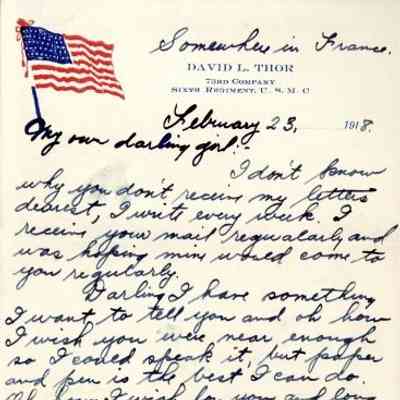 Somewhere in France.
DAVID L. THOR
73RD COMPANY
SIXTH REGIMENT, U. S. M. C
February 23, 1918.
My own darling girl:-
I don't know
why you don't receive my letters
dearest, I write every week. I
receive your mail regualarly and
was hoping mine would come to
you regularly.
Darling I have something
I want to tell you and oh how
I wish you were near enough
so I could speak it, but paper
and pen is the best I can do.
Oh how I wish for you and long